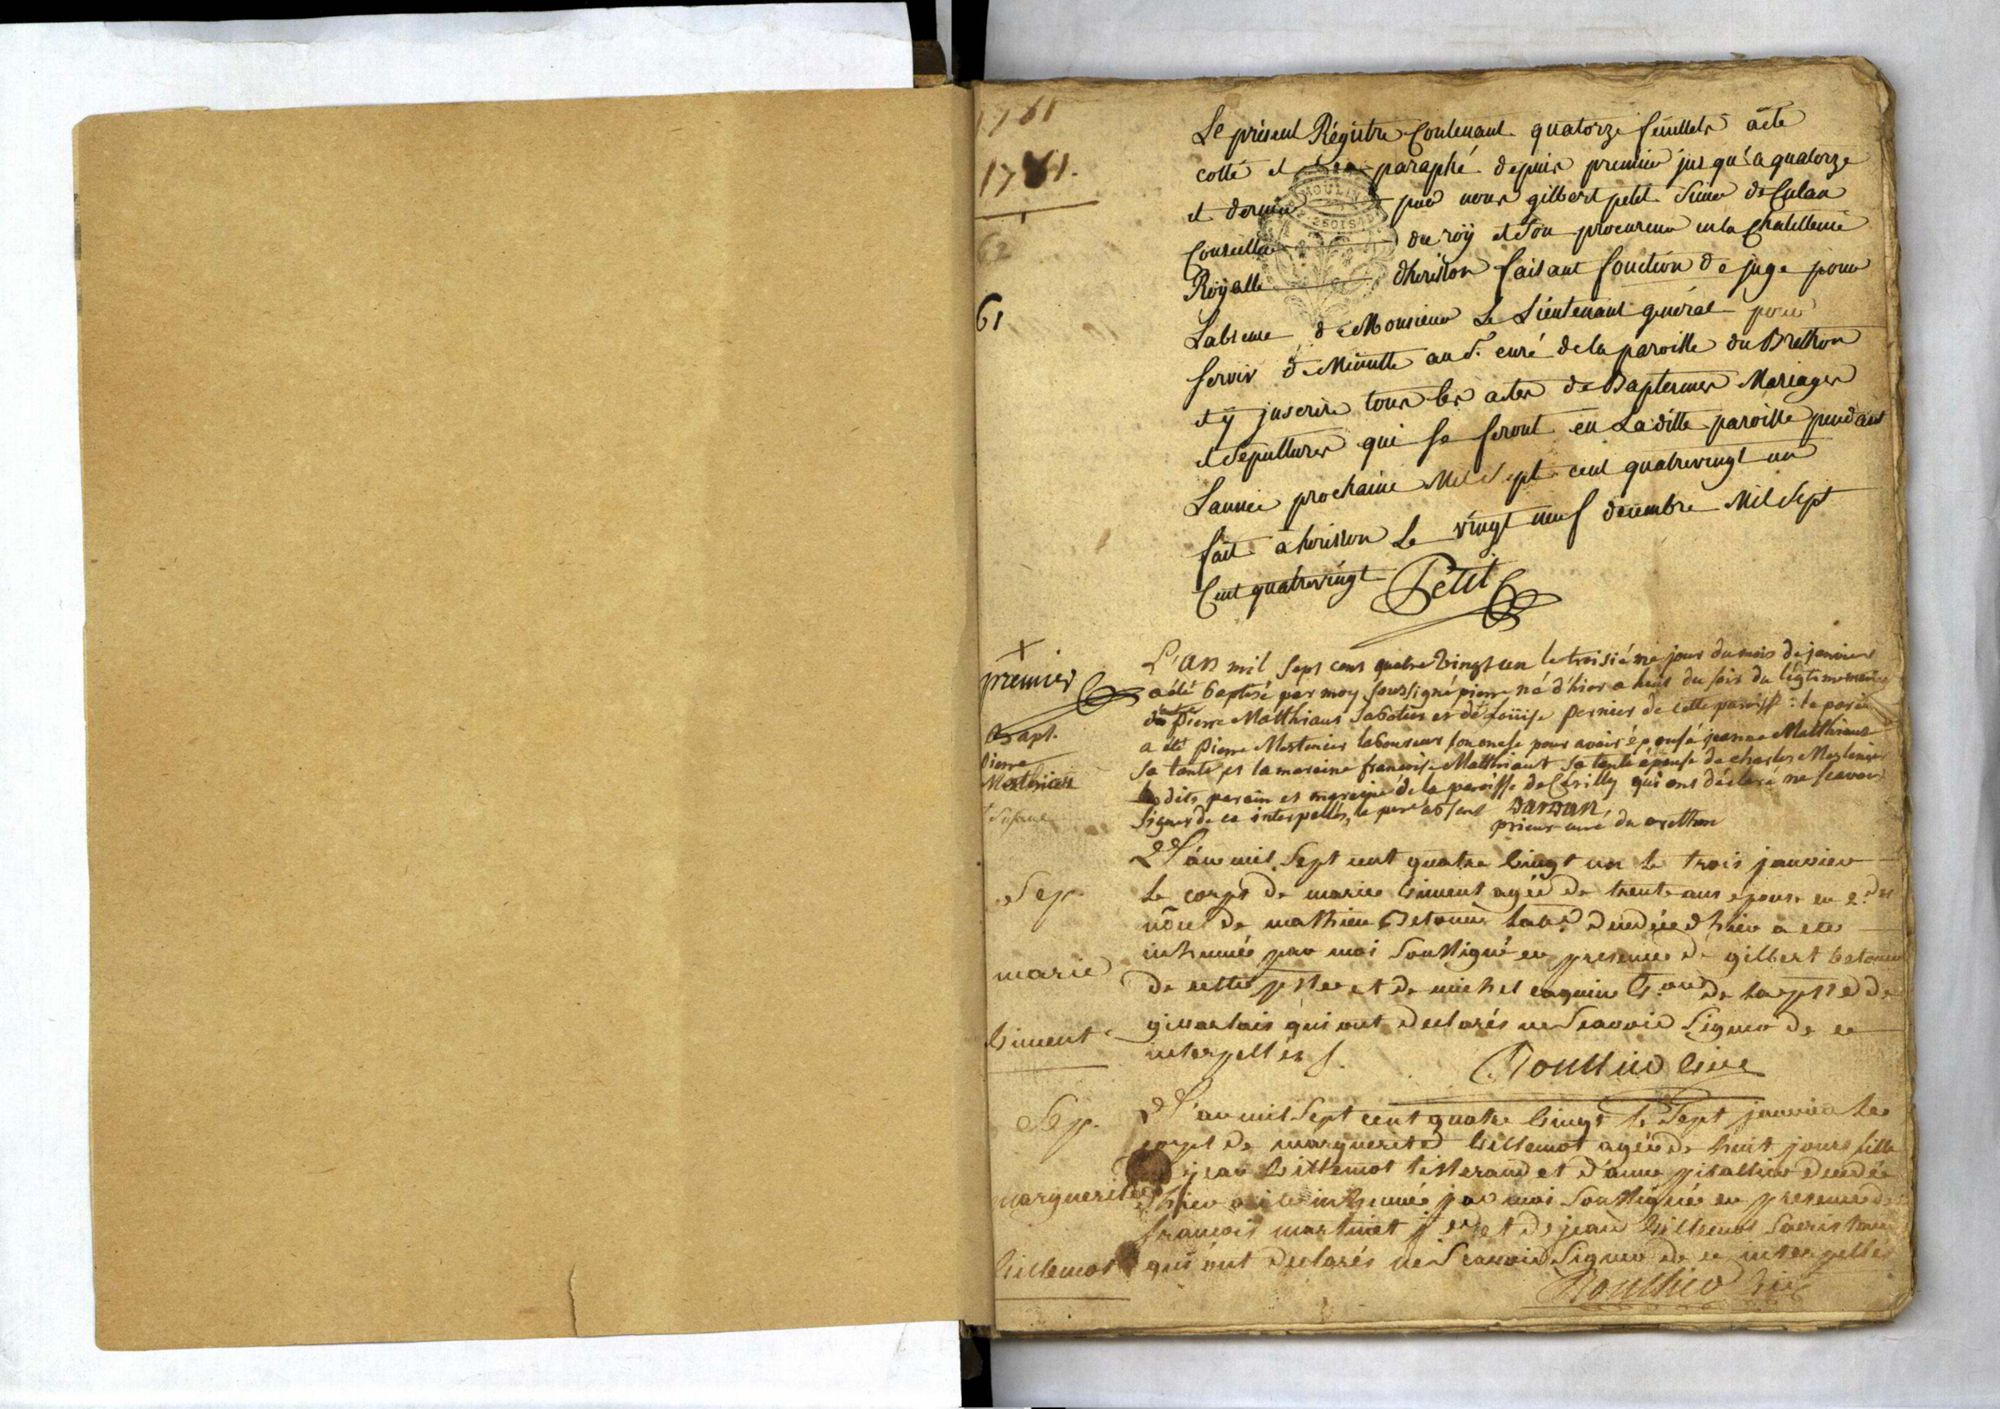 1781.
61
Le présent Régistre Contenant quatorze feuillets a été
cotté et paraphé depuis premier jusqu'a quatorze
et dernier par nous gilbert petit Sieur de Culan
Conseiller du roÿ et son procureur en la Chatellenie
Roÿalle dherisson faisant fonction de juge pour
Labsence de Monsieur Le Lieutenant général pour
servir de Minutte au S. curé de la paroisse du Brethon
et ÿ jnscrire tous les actes de Baptesmes Mariages
et Sepultures qui se feront en Laditte paroisse pendant
Lannée prochaine Mil Sept cent quatrevingt un
fait a herisson Le vingt neuf decembre Mil Sept
Cent quatrevingt Petit
premier
Bapt.
pierre
L'an mil sept cens quatre vingt un le troisiéme jour du mois de janvier
a été baptisé par moy soussigné pierre né d'hier a heures du soir du légitime mariage
de pierre Matthiaus Sabotier et de Loüise pernier de cette paroisse : le parain
a été pierre Mestenier laboureur son oncle pour avoir épousé jeanne Matthiaus
sa tante et la maraine françoise Matthiaus sa tante épouse de charles Mestenier
les dits parain et maraine de la paroisse de Cérilly qui ont déclaré ne scavoir
signer de ce interpellés, le pere absent
prieur curé du Brethon
Sep.
marie
Vincent
L'an mil Sept cent quatre vingt un Le trois janvier
Le corps de marie Vincent agée de trente ans epouse en
de mathieu Betoux decedée d'hier a ete
inhumée par moi Soussigné en presence de gilbert betoux
de cette psse et de michel de la psse de
qui ont declarés ne Scavoir Signer de ce
interpellés
vice
Sep.
marguerite
Villemot
L'an mil Sept cent quatre vingt le Sept janvier Le
corps de marguerite Villemot agée de huit jours fille
de jean Villemot tisserand et d'anne decedée
d'hier a ete inhumée par moi Soussigné en presence de
francois martinet et de jean Villemot Sacristain
qui ont declarés ne Scavoir Signer de ce interpellés
vice